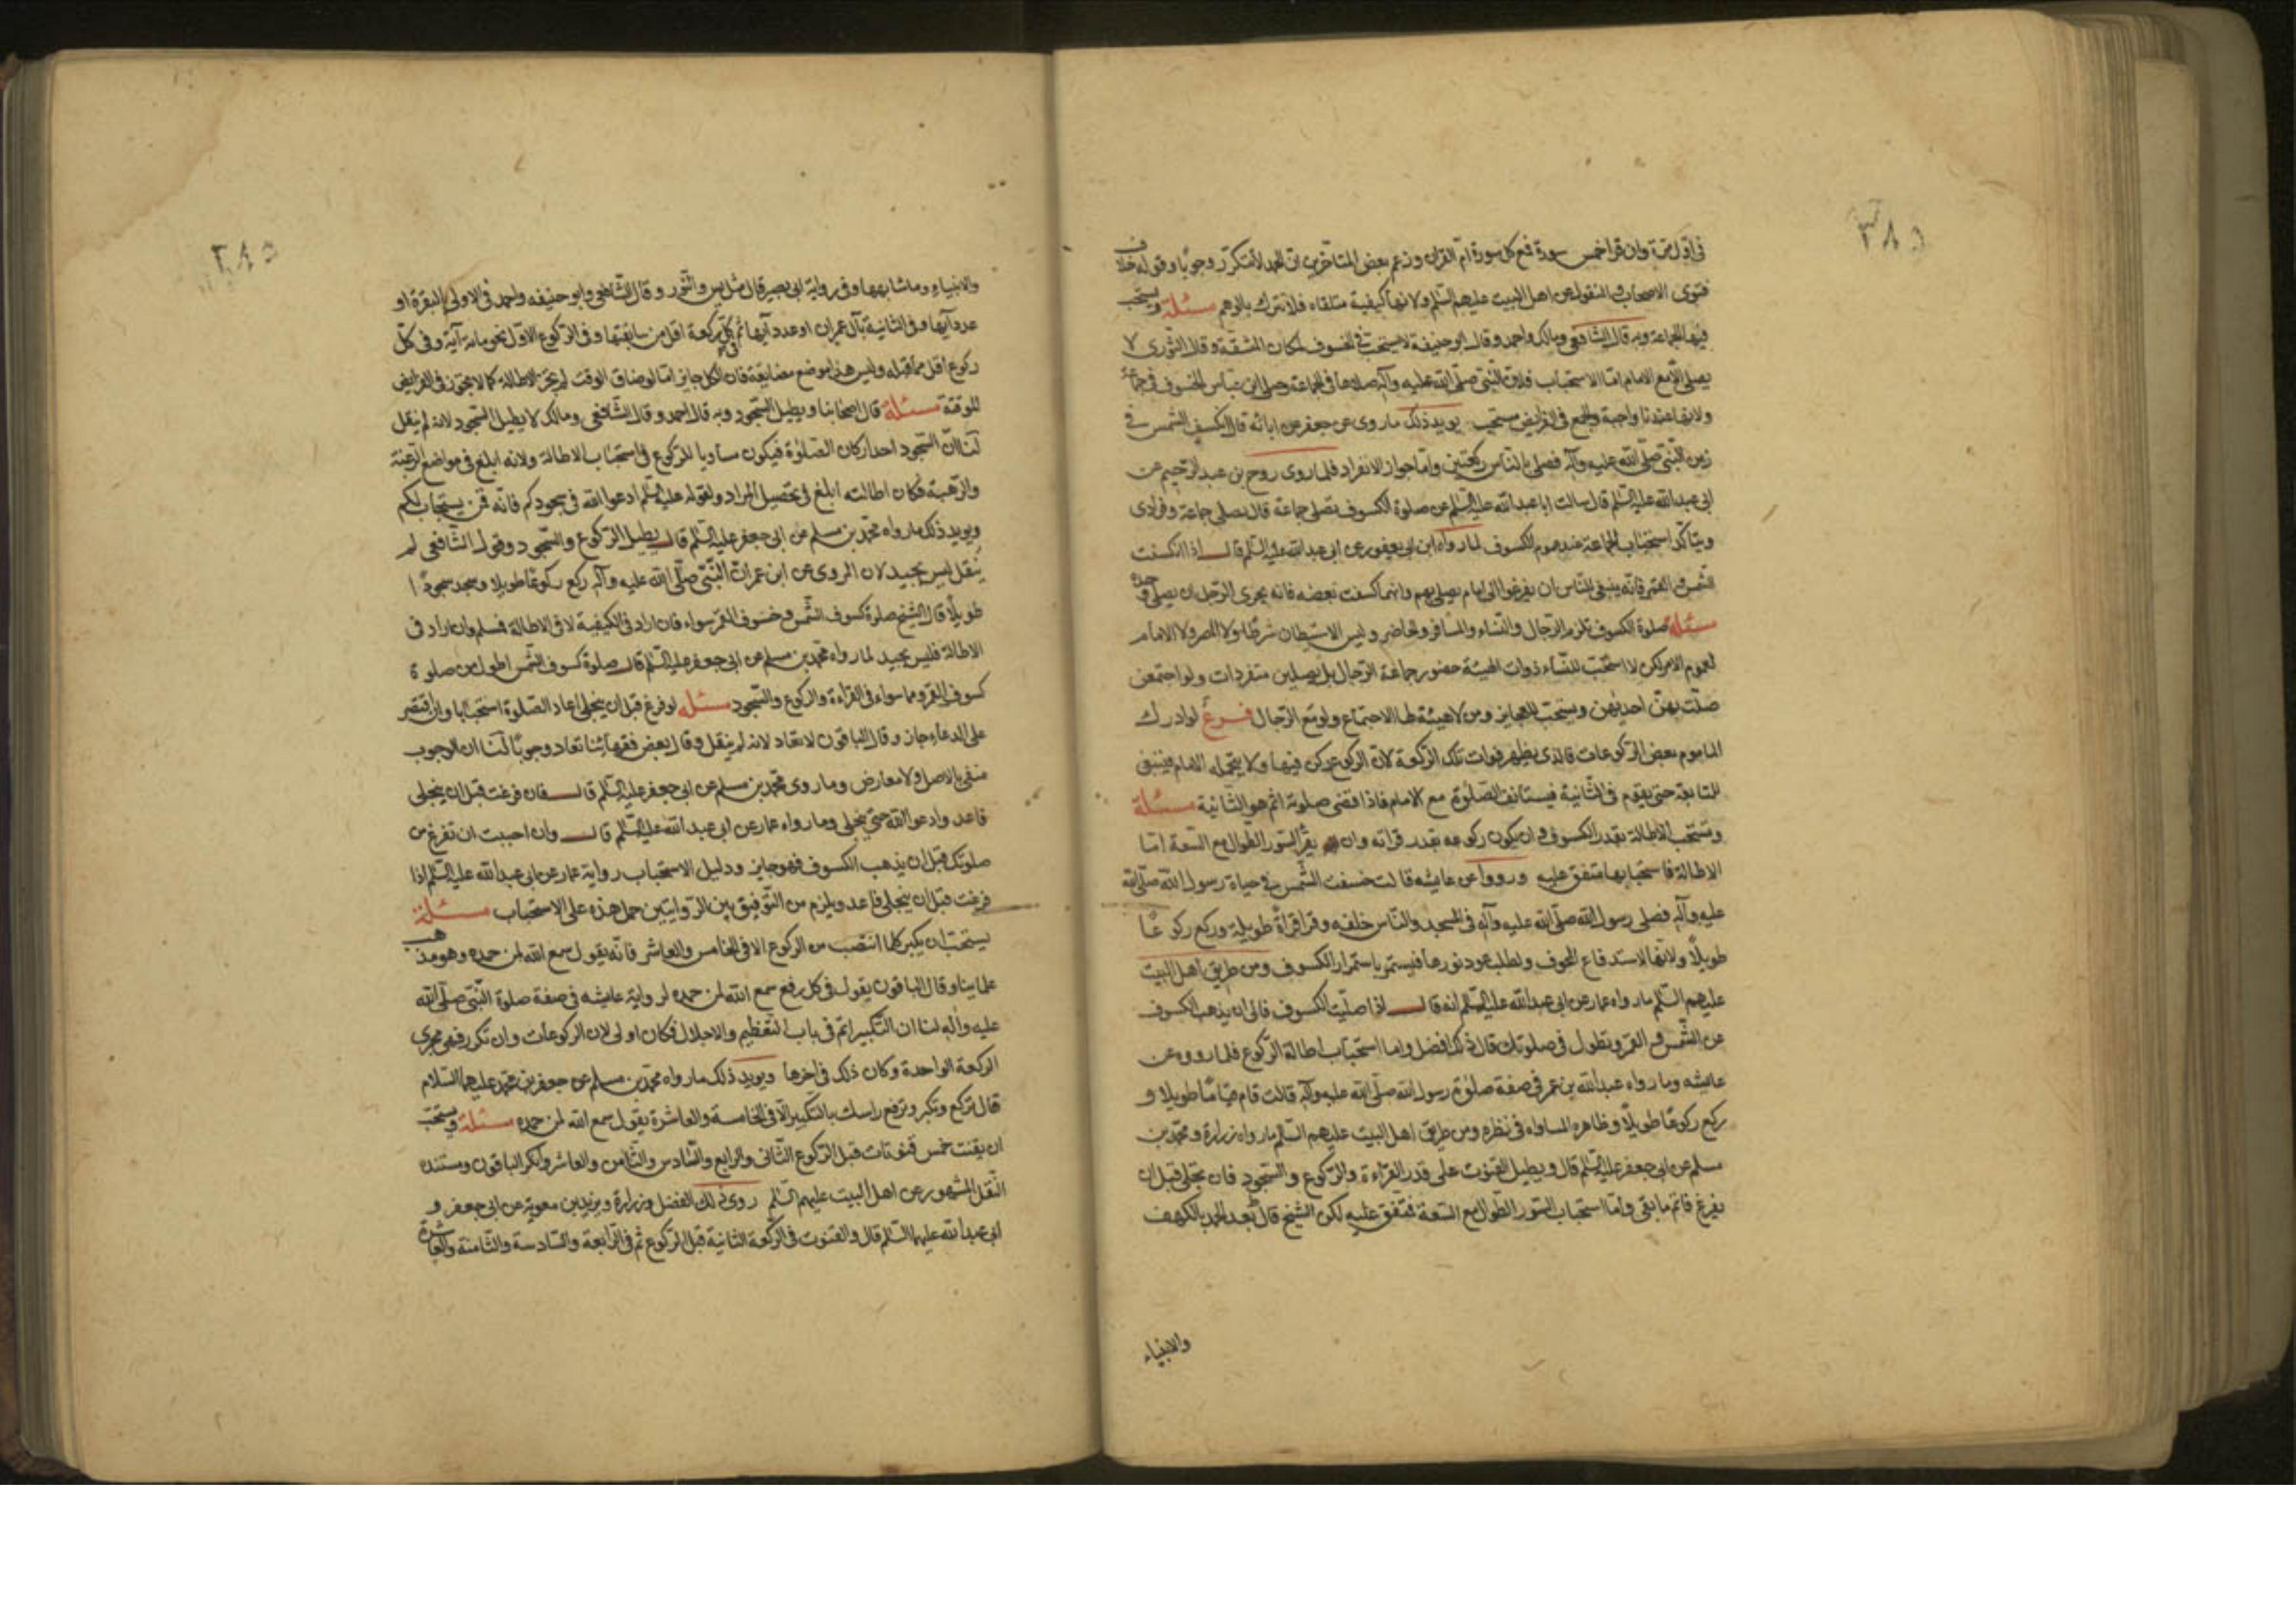 ٣٨٥
في اول مرة وان قرا خمس سورة فمع كل سورة ام القران وزعم بعض المتاخرين ان الحمد لا تتكرر وجوبا وقوله خلاف
فتوى الاصحاب والمنقول عن اهل البيت عليهم السّلم ولانها كيفية متلقاه فلا تترك بالوهم مسئلة ويستحب
فيها الجماعة وبه قال الشافعي ومالك واحمد وقال ابو حنيفة لا يستحب في الخسوف لمكان المشقة وقال الثوري لا
يصلي الا مع الامام اما الاستحباب فلان النبي صلّى الله عليه وآله صلاها في الجماعة وصلى ابن عباس الخسوف في جماعة
ولانها عندنا واجبة والجمع في الفرايض مستحب يويد ذلك ما روى عن جعفر عن ابائه قال انكسف الشمس في
زمن النّبي صلّى الله عليه وآله فصلى بالناس ركعتين واما جواز الانفراد فلما روى روح بن عبد الرّحيم عن
ابي عبد الله عليه السّلم قال سالت ابا عبد الله عليه السّلم عن صلوة الكسوف تصلى جماعة قال يصلى جماعة وفرادى
ويتاكد استحباب الجماعة عند عموم الكسوف لما رواه ابن ابي يعفور عن ابي عبد الله عليه السّلم قال اذا انكسفت
الشمس والقمر فانه ينبغي للناس ان يفزعوا الى امام يصلي بهم وانهما كسفت بعضه فانه يجزى الرّجل ان يصلي وحده
مسئلة صلوة الكسوف تلزم الرّجال والنساء والمسافر والحاضر وليس الاستيطان شرطا ولا المصر ولا الامام
لعموم الامر لكن لا استحب للنساء ذوات الهيئة حضور جماعة الرجال بل يصلين منفردات ولو اجتمعن
صلّت بهنّ احديهن ويستحب للعجايز ومن لا هيئة لها الاجتماع ولو مع الرجال فرع لو ادرك
الماموم بعض الركوعات فالذي يظهر فوات تلك الركعة لان الركوع ركن فيها ولا يتحمله الامام فينبغي
المتابعة حتى يقوم في الثانية فيستانف الصّلوة مع الامام فاذا قضى صلوته اتم هو الثانية مسئلة
وتستحب الاطالة بقدر الكسوف وان يكون ركوعه بقدر قراته وان يقرا السّور الطوال مع السّعة اما
الاطالة فاستحبابها متفق عليه ورووا عن عايشه قالت خسفت الشمس في حياة رسول الله صلّى الله
عليه وآله فصلى رسول الله صلّى الله عليه وآله في المسجد والنّاس خلفه وقرا قراةً طويلة وركع ركوعًا
طويلًا ولانها لاستدفاع المخوف ولطلب عود نورها فيستمر باستمرار الكسوف ومن طريق اهل البيت
عليهم السّلم ما رواه عمار عن ابي عبد الله عليه السّلم انه قال اذا صلّيت الكسوف فالى ان يذهب الكسوف
عن الشمس والقمر وتطول في صلوتك قال ذلك افضل واما استحباب اطالة الركوع فلما رووه عن
عايشه وما رواه عبد الله بن عمر في صفة صلوة رسول الله صلّى الله عليه وآله قالت قام قيامًا طويلا و
ركع ركوعًا طويلًا وظاهره المساواه في نظره ومن طريق اهل البيت عليهم السّلم ما رواه زرارة ومحمد بن
مسلم عن ابي جعفر عليه السّلم قال ويطيل القنوت على قدر القراءة والركوع والسّجود فان تجلى قبل ان
يفرغ فاتم ما بقي واما استحباب السّور الطوال مع السعة فمتفق عليه لكن الشيخ قال بعد الحمد بالكهف
والانبياء
٣٨٥
والانبياءِ وما شابهها وفي رواية ابي بصير قال مثل يس والنّور وقال الشّافعي وابو حنيفه واحمد في الاولى بالبقرة او
عدد آيها وفي الثانية بآل عمران او عدد آيها ثم كل ركعة اقل من سابقتها وفي الركوع الاوّل نحو مائة آية وفي كلّ
ركوع اقل مما قبله وليس هذا موضع مضايقة فان الكل جايز اما لو ضاق الوقت لم تجز الاطالة كما لا يجوز في الفرايض
الموقتة مسئلة قال اصحابنا ويطيل السّجود وبه قال احمد وقال الشّافعي ومالك لا يطيل السّجود لانه لم ينقل
لنا انّ السّجود احد اركان الصّلوة فيكون مساويا للركوع في استحباب الاطالة ولانه ابلغ في مواضع الرّغبة
والرّهبة فكان اطالته ابلغ في تحصيل المراد ولقوله عليه السّلم ادعوا الله في سجودكم فانّه قمن يستجاب لكم
ويويد ذلك ما رواه محمّد بن مسلم عن ابي جعفر عليه السّلم قال يطيل الرّكوع والسّجود وقول الشّافعي لم
ينقل ليس بجيد لان المروى عن ابن عمر انّ النّبيّ صلّى الله عليه وآله ركع ركوعًا طويلًا وسجد سجودًا
طويلًا قال الشّيخ صلوة كسوف الشّمس وخسوف القمر سواء فان اراد في الكيفية لا في الاطالة فمسلم وان اراد في
الاطالة فليس بجيد لما رواه محمد بن مسلم عن ابي جعفر عليه السّلم قال صلوة كسوف الشّمس اطول من صلوة
كسوف القمر وهما سواء في القراءة والركوع والسّجود مسئله لو فرغ قبل ان ينجلي اعاد الصّلوة استحبابا وان اقتصر
على الدعاءِ جاز وقال الباقون لا تعاد لانه لم ينقل وقال بعض فقهائنا تعاد وجوبًا لنا ان الوجوب
منفي بالاصل ولا معارض وما روى محمّد بن مسلم عن ابي جعفر عليه السّلم قال فان فرغت قبل ان ينجلى
فاعد وادعوا الله حتى ينجلى وما رواه عمار عن ابي عبد الله عليه السّلم قال وان احببت ان تفرغ من
صلوتك قبل ان يذهب الكسوف فهو جايز ودليل الاستحباب رواية عمار عن ابي عبد الله عليه السّلم اذا
فرغت قبل ان ينجلى فاعد ويلزم من التّوفيق بين الرّوايتين حمل هذه على الاستحباب مسئلة
يستحبّ ان يكبر كلما انتصب من الركوع الا في الخامس والعاشر فانّه يقول سمع الله لمن حمده وهو مذهب
علماينا وقال الباقون يقول في كل رفع سمع الله لمن حمده لرواية عايشه في صفة صلوة النّبي صلّى الله
عليه وآله لنا ان التكبير اتم في باب التّعظيم والاجلال فكان اولى لان الركوعات وان تكرر فهي مجرى
الركعة الواحدة وكان ذلك في اخرها ويويد ذلك ما رواه محمّد بن مسلم عن جعفر بن محمّد عليهما السّلام
قال تركع وتكبر وترفع راسك بالتّكبير الّا في الخامسة والعاشرة يقول سمع الله لمن حمده مسئلة ويستحبّ
ان يقنت خمس قنوتات قبل الرّكوع الثّاني والرابع والسّادس والثّامن والعاشر وانكر الباقون ومستنده
النّقل المشهور عن اهل البيت عليهم السّلم روى ذلك الفضل وزرارة وبريد بن معوية عن ابي جعفر و
ابي عبد الله عليهما السّلم قال والقنوت في الرّكعة الثانية قبل الرّكوع ثم في الرّابعة والسّادسة والثّامنة والعاشرة